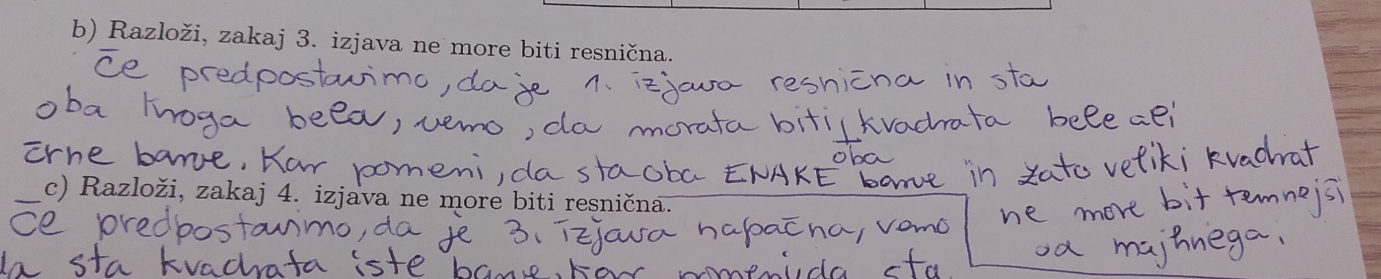 b) Razloži, zakaj 3. izjava ne more biti resnična.
če predpostavimo, da je 1. izjava resnična in sta
oba kroga bela, vemo, da morata biti oba kvadrata bele ali
črne barve. Kar pomeni, da sta oba ENAKE barve in zato veliki kvadrat
ne more bit temnejši
od majhnega.
c) Razloži, zakaj 4. izjava ne more biti resnična.
Če predpostavimo, da je 3. izjava napačna, vemo
da sta kvadrata iste barve, kar pomeni da sta